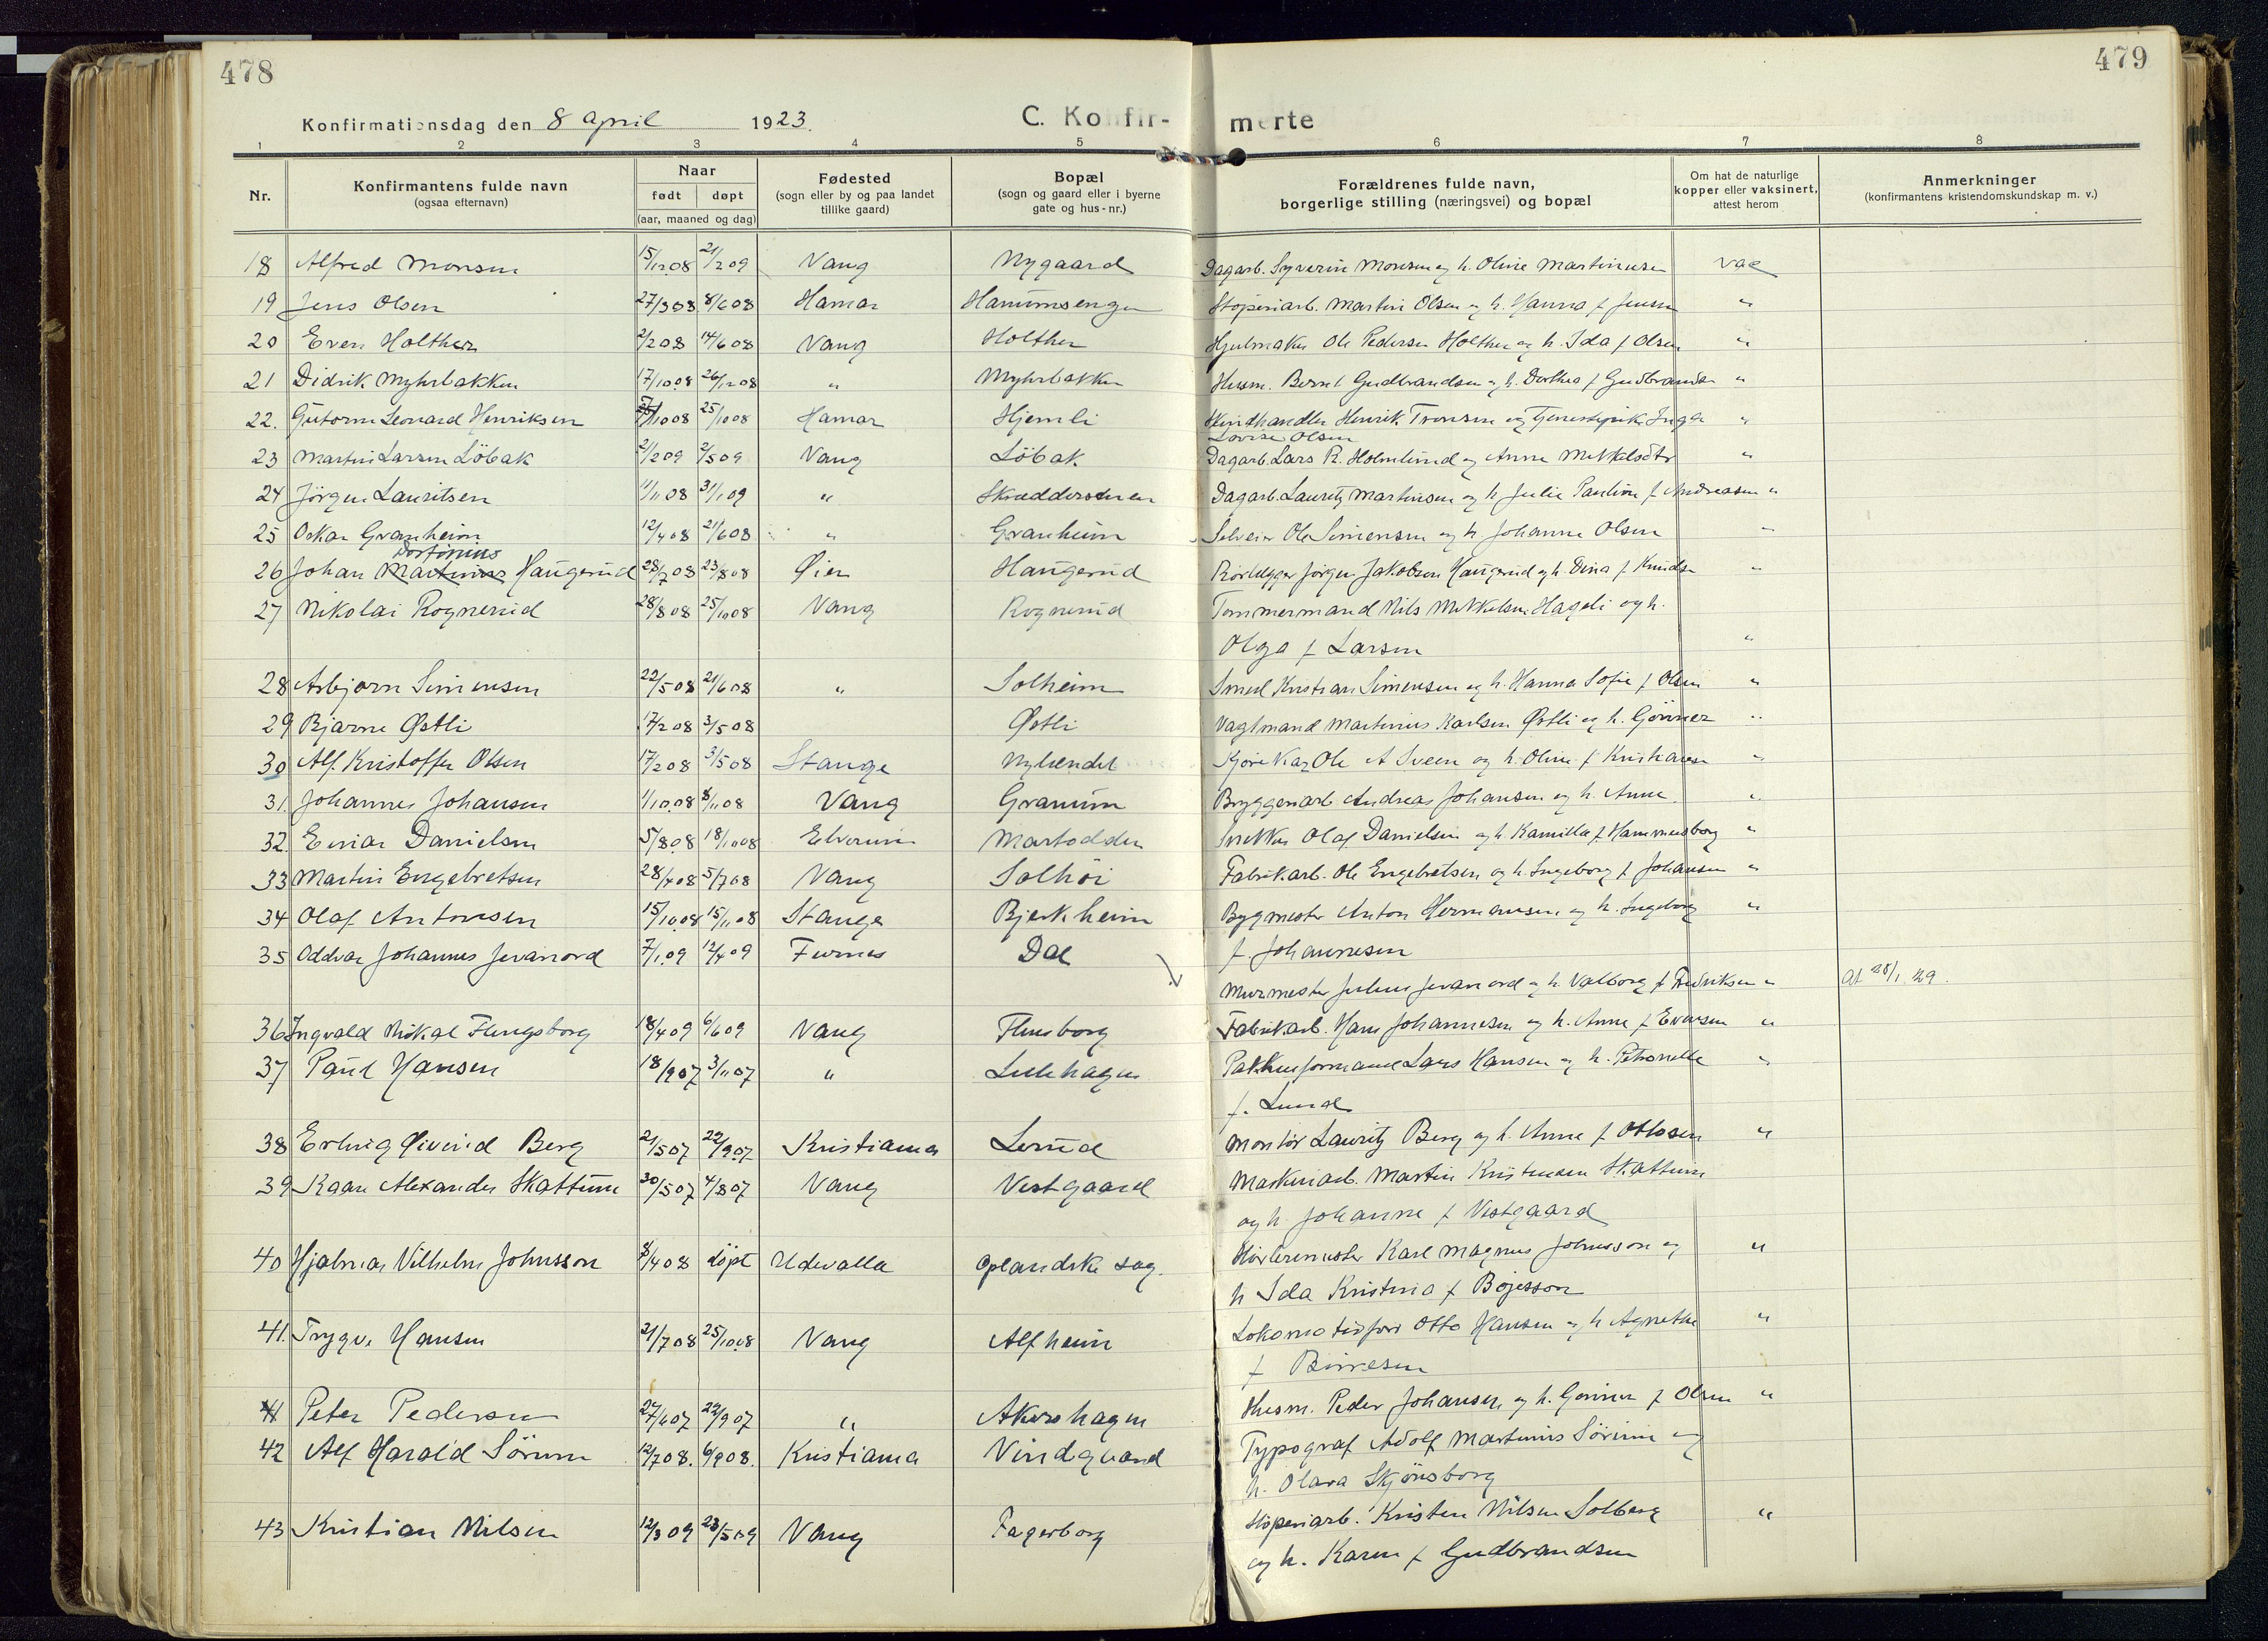 478
479
Konfirmationsdag den 8 april 1923.
C. Konfir-
merte
1 2 3 4 5 6 7 8
Nr.
Konfirmantens fulde navn
(ogsaa efternavn)
Naar
født døpt
(aar, maaned og dag)
Fødested
(sogn eller by og paa landet
tillike gaard)
Bopæl
(sogn og gaard eller i byerne
gate og hus-nr.)
Forældrenes fulde navn,
borgerlige stilling (næringsvei) og bopæl
Om hat de naturlige
kopper eller vaksinert,
attest herom
Anmerkninger
(konfirmantens kristendomskundskap m. v.)
18 Alfred Monsen 15/12 08 21/2 09 Vang Nygaard Dagarb. Syverin Monsen og h. Oline Martinusen vac
19 Jens Olsen 27/3 08 8/6 08 Hamar Hanumsengen Støperiarb. Martin Olsen og h. Hanna f Jensen "
20 Even Holthen 2/2 08 14/6 08 Vang Holthen Hjulmaker Ole Pedersen Holthen og h. Ida f Olsen "
21 Didrik Myhrbakken 17/10 08 26/12 08 " Myhrbakken Husm. Bernt Gudbrandsen og h. Dorthea f Gudbrands "
22. Guttorm Leonard Henriksen /10 08 25/10 08 Hamar Hjemli Skindhandler Henrik Tronsen og Tjenestepike Inga
Lovise Olsen "
23 Martin Larsen Löbak 2/2 09 2/5 09 Vang Löbak Dagarb. Lars P. Holmlund og Anne Mikkelsdtr "
24 Jörgen Lauritsen 11/11 08 31/1 09 " Skreddersnen Dagarb. Lauritz Martinsen og h Julie Pauline f Andreasen "
25 Oskar Granheim 12/4 08 21/6 08 " Granheim Selveier Ole Simensen og h Johanne Olsen "
26 Johan Martinius Dortinius Haugerud 28/7 08 23/8 08 Øier Haugerud Rörlegger Jörgen Jakobsen Haugerud og h. Dina f Knuds "
27 Nikolai Rognerud 28/8 08 25/10 08 Vang Rognerud Tømmermand Nils Mikkelsen Hageli og h.
Olga f Larsen "
28 Asbjørn Simensen 22/5 08 21/6 08 " Solheim Smed Kristian Simensen og h. Hanna Sofie f Olsen "
29 Bjarne Østli 17/2 08 3/5 08 Østli Vagtmand Martinius Karlsen Østli og h. Gunner "
30 Alf Kristoffer Olsen 17/2 08 3/5 08 Stange Nylændet Kjørekar Ole A Sveen og h. Oline f Kristiansen "
31. Johannes Johansen 1/10.08 8/11 08 Vang Granum Bryggeriarb. Andreas Johansen og h. Anne. "
32. Einar Danielsen 5/8 08 18/10 08 Elverum Martodden Snekker Olaf Danielsen og h. Kamilla f. Hammersborg "
33 Martin Engebretsen 28/4 08 5/7 08 Vang Solhöi Fabrikarb. Ole Engebretsen og h. Ingeborg f Johansen "
34 Olaf Antonsen 15/10.08 15/11 08 Stange Bjerkheim Bygmester Anton Hermansen og h. Ingeborg "
f. Johannesen
35 Oddvar Johannes Jevanord 7/1.09 12/4 09 Furnes Dal Murmester Julius Jevanord og h. Valborg f Fredriksen " At 28/1.29.
36 Ingvald Mikal Flengsborg 18/4 09 6/6 09 Vang Flensborg Fabrikarb. Hans Johannesen og h. Anne f Evensen "
37 Paul Hansen 18/9 07 3/11 07 " Lillehagen Pakhusformand Lars Hansen og h. Petronelle "
f. Lund
38 Erling Øivind Berg 21/5 07 22/9 07 Kristiania Lerud Montør Lauritz Berg og h. Anne f Ottosen "
39 Kaare Alexander Skattum 30/5 07 4/8 07 Vang Vestgaard Maskinarb. Martin Kristensen Skattum
og h Johanne f Vestgaard
40 Hjalmar Vilhelm Johnsson 8/4 08 döpt Udevalla Oplandske sag. Høvlerimester Karl Magnus Johnsson og "
h Ida Kristina f Bøjesson
41. Trygve Hansen 21/7 08 25/10 08 Vang Alfheim Lokomotivförer Otto Hansen og h Agnethe "
f Birresen
41 Peter Pedersen 27/6 07 22/9 07 " Akershagen Husm. Peder Johansen og h. Gunner f Olsen "
42 Alf Harald Sörum 12/7 08. 6/9 08. Kristiania Vindqvand Typograf Adolf Martinius Sörum og
h. Olava Skjönsborg
43 Kristian Nilsen 12/3 09 23/5 09 Vang Fagerborg Støperiarb. Kristen Nilsen Solberg "
og h. Karen f Gudbrandsen